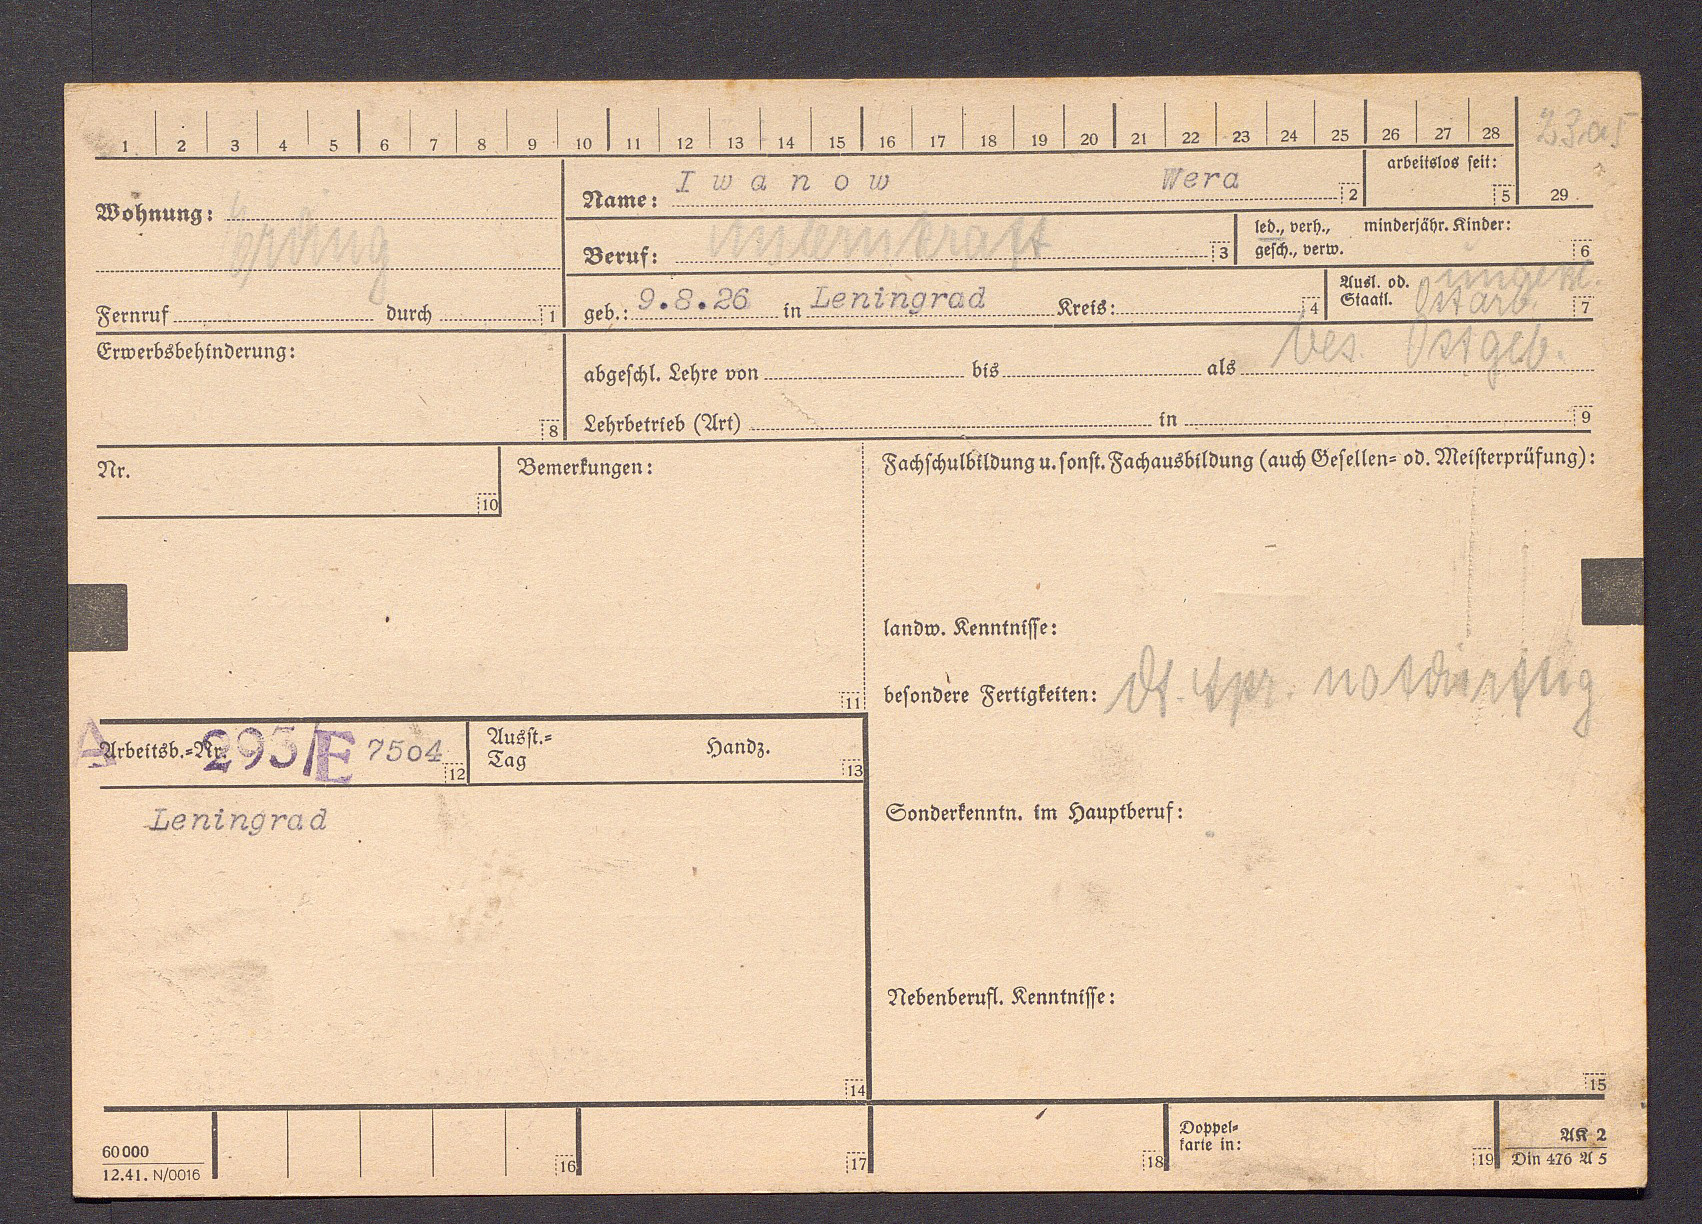 1 2 3 4 5 6 7 8 9 10 11 12 13 14 15 16 17 18 19 20 21 22 23 24 25 26 27 28
arbeitslos seit: 5 29
Wohnung: Erding
Fernruf durch 1
Name: Iwanow Wera 2
Beruf: 3
led., verh., minderjähr. Kinder:
gesch., verw. 6
geb.: 9.8.26 in Leningrad Kreis: 4
Ausl. od. ungekl.
Staatl. Ostarb. 7
bes. Ostgeb.
Erwerbsbehinderung: 8
abgeschl. Lehre von bis als
Lehrbetrieb (Art) in 9
Nr. 10
Bemerkungen: 11
Fachschulbildung u. sonst. Fachausbildung (auch Gesellen= od. Meisterprüfung):
landw. Kenntnisse:
besondere Fertigkeiten: dt. spr. notdürftig
A
Arbeitsb.=Nr. 295/E 7504 12
Ausst.=
Tag Handz. 13
Leningrad
14
Sonderkenntn. im Hauptberuf:
Nebenberufl. Kenntnisse:
15
60 000
12.41. N/0016
16 17 18
Doppel=
karte in: 19
AK 2
Din 476 A 5